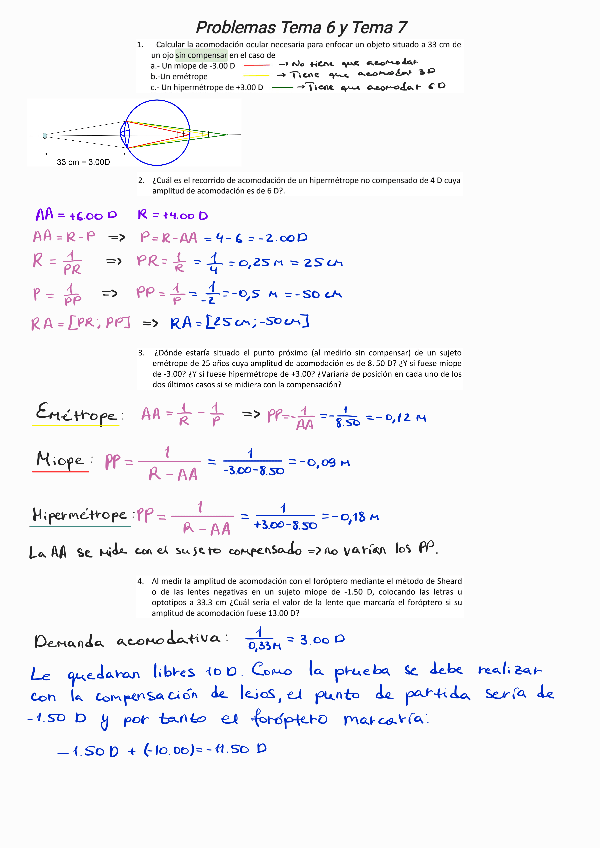 Problemas Tema 6 y Tema 7
1. Calcular la acomodación ocular necesaria para enfocar un objeto situado a 33 cm de
un ojo sin compensar en el caso de
a.- Un miope de -3.00 D → No tiene que acomodar
b. Un emétrope → Tiene que acomodar 3D
c.- Un hipermétrope de +3.00 D → Tiene que acomodar 6D
33 cm = 3.00D
2. ¿Cuál es el recorrido de acomodación de un hipermétrope no compensado de 4 D cuya
amplitud de acomodación es de 6 D?.
AA = +6.00 D R = +4.00 D
AA = R - P => P = R - AA = 4 - 6 = -2.00 D
R = 1/PR => PR = 1/R = 1/4 = 0,25 M = 25 cm
P = 1/PP => PP = 1/P = 1/-2 = -0,5 M = -50 cm
RA = [PR; PP] => RA = [25 cm; -50 cm]
3. ¿Dónde estaría situado el punto próximo (al medirlo sin compensar) de un sujeto
emétrope de 25 años cuya amplitud de acomodación es de 8.50 D? ¿Y si fuese miope
de -3.00? ¿Y si fuese hipermétrope de +3.00? ¿Variaría de posición en cada uno de los
dos últimos casos si se midiera con la compensación?
Emétrope: AA = 1/R - 1/P => PP = -1/AA = -1/8.50 = -0,12 M
Miope: PP = 1/R - AA = 1/-3.00-8.50 = -0,09 M
Hipermétrope: PP = 1/R - AA = 1/+3.00-8.50 = -0,18 M
La AA se mide con el sujeto compensado => no varían los PP.
4. Al medir la amplitud de acomodación con el foróptero mediante el método de Sheard
o de las lentes negativas en un sujeto miope de -1.50 D, colocando las letras u
optotipos a 33.3 cm ¿Cuál sería el valor de la lente que marcaría el foróptero si su
amplitud de acomodación fuese 13.00 D?
Demanda acomodativa: 1/0,33M = 3.00 D
Le quedaran libres 10 D. Como la prueba se debe realizar
con la compensación de lejos, el punto de partida sería de
-1.50 D y por tanto el foróptero marcaría:
-1.50 D + (-10.00) = -11.50 D